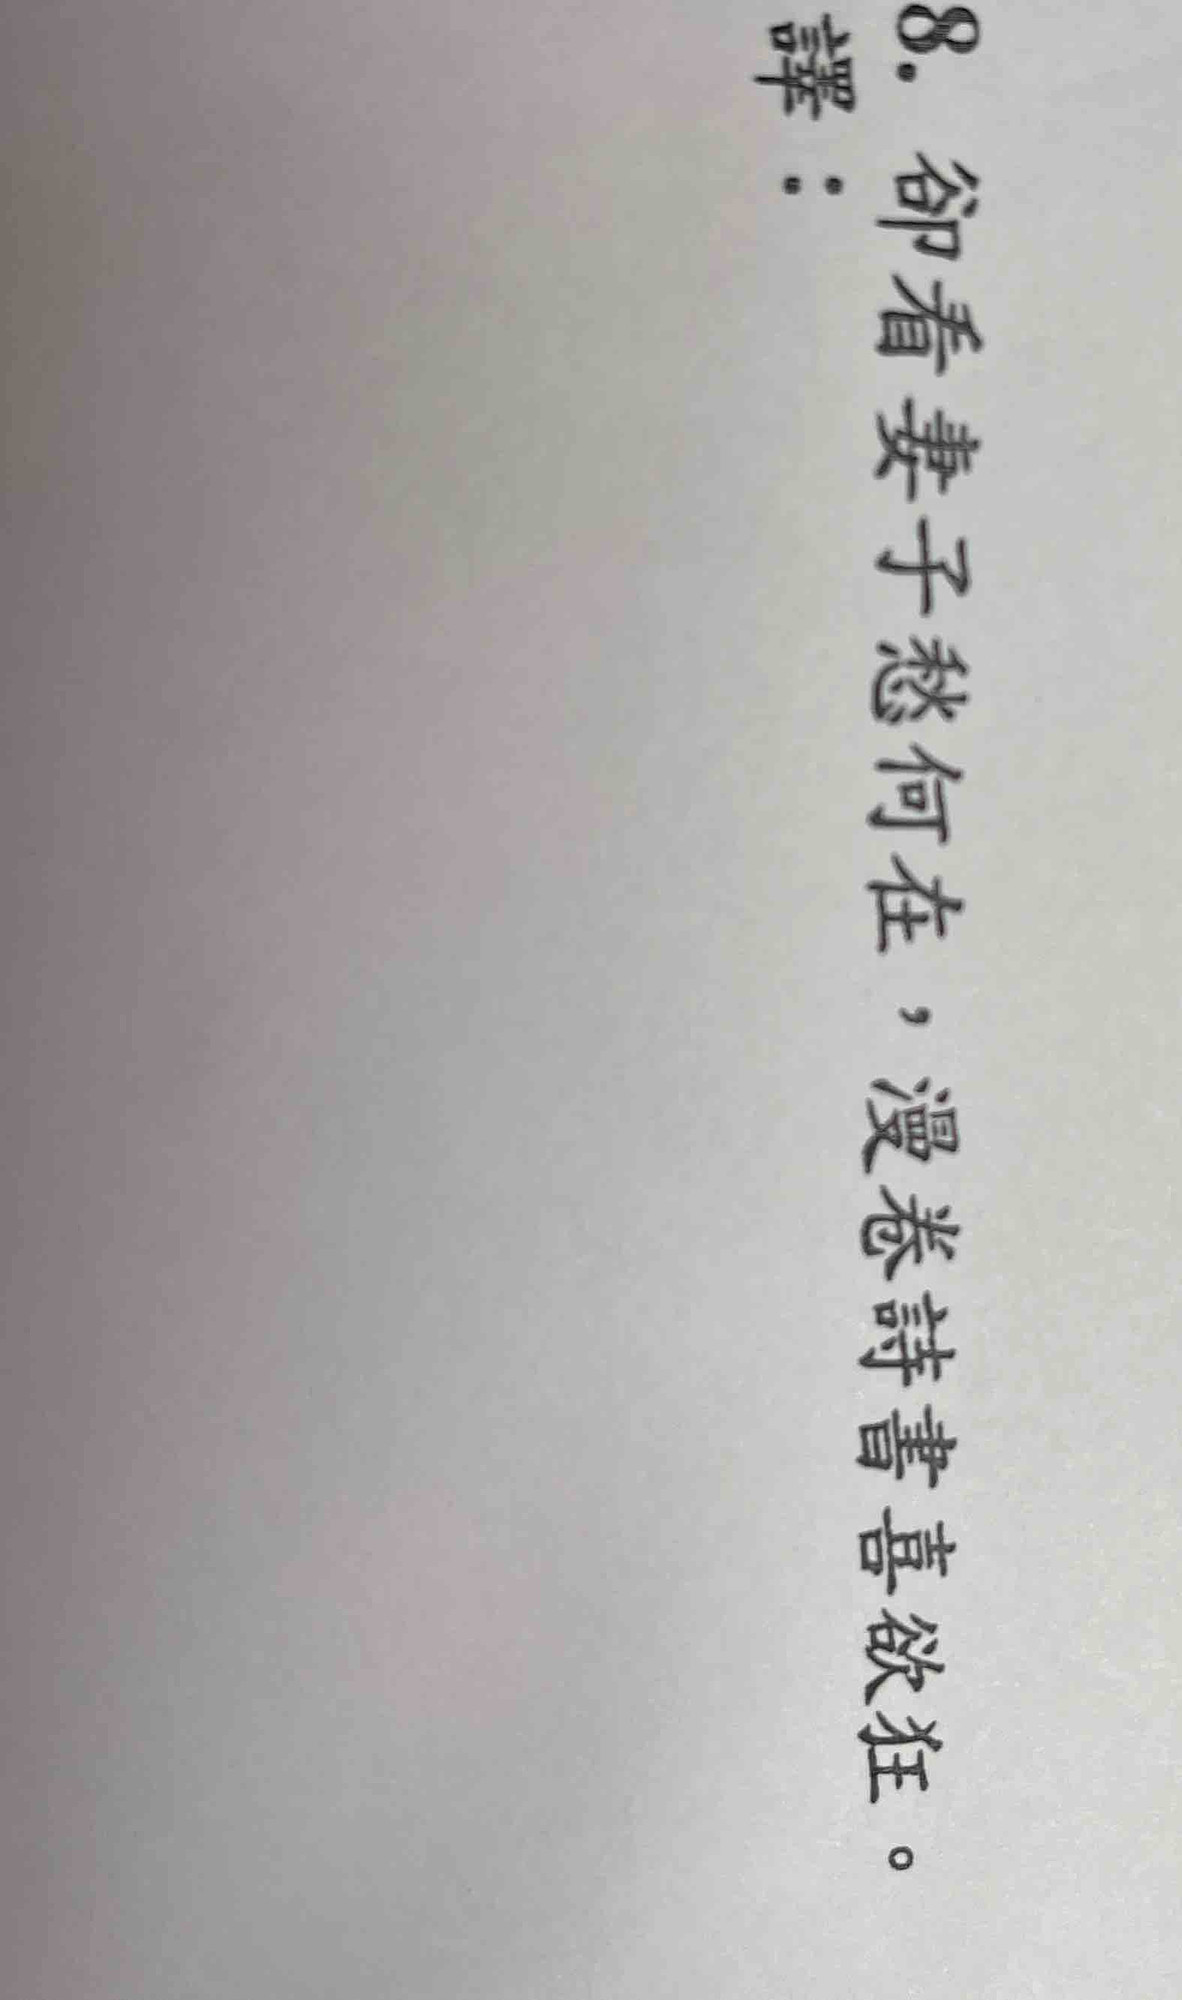 8. 卻看妻子愁何在，漫卷詩書喜欲狂。
譯：